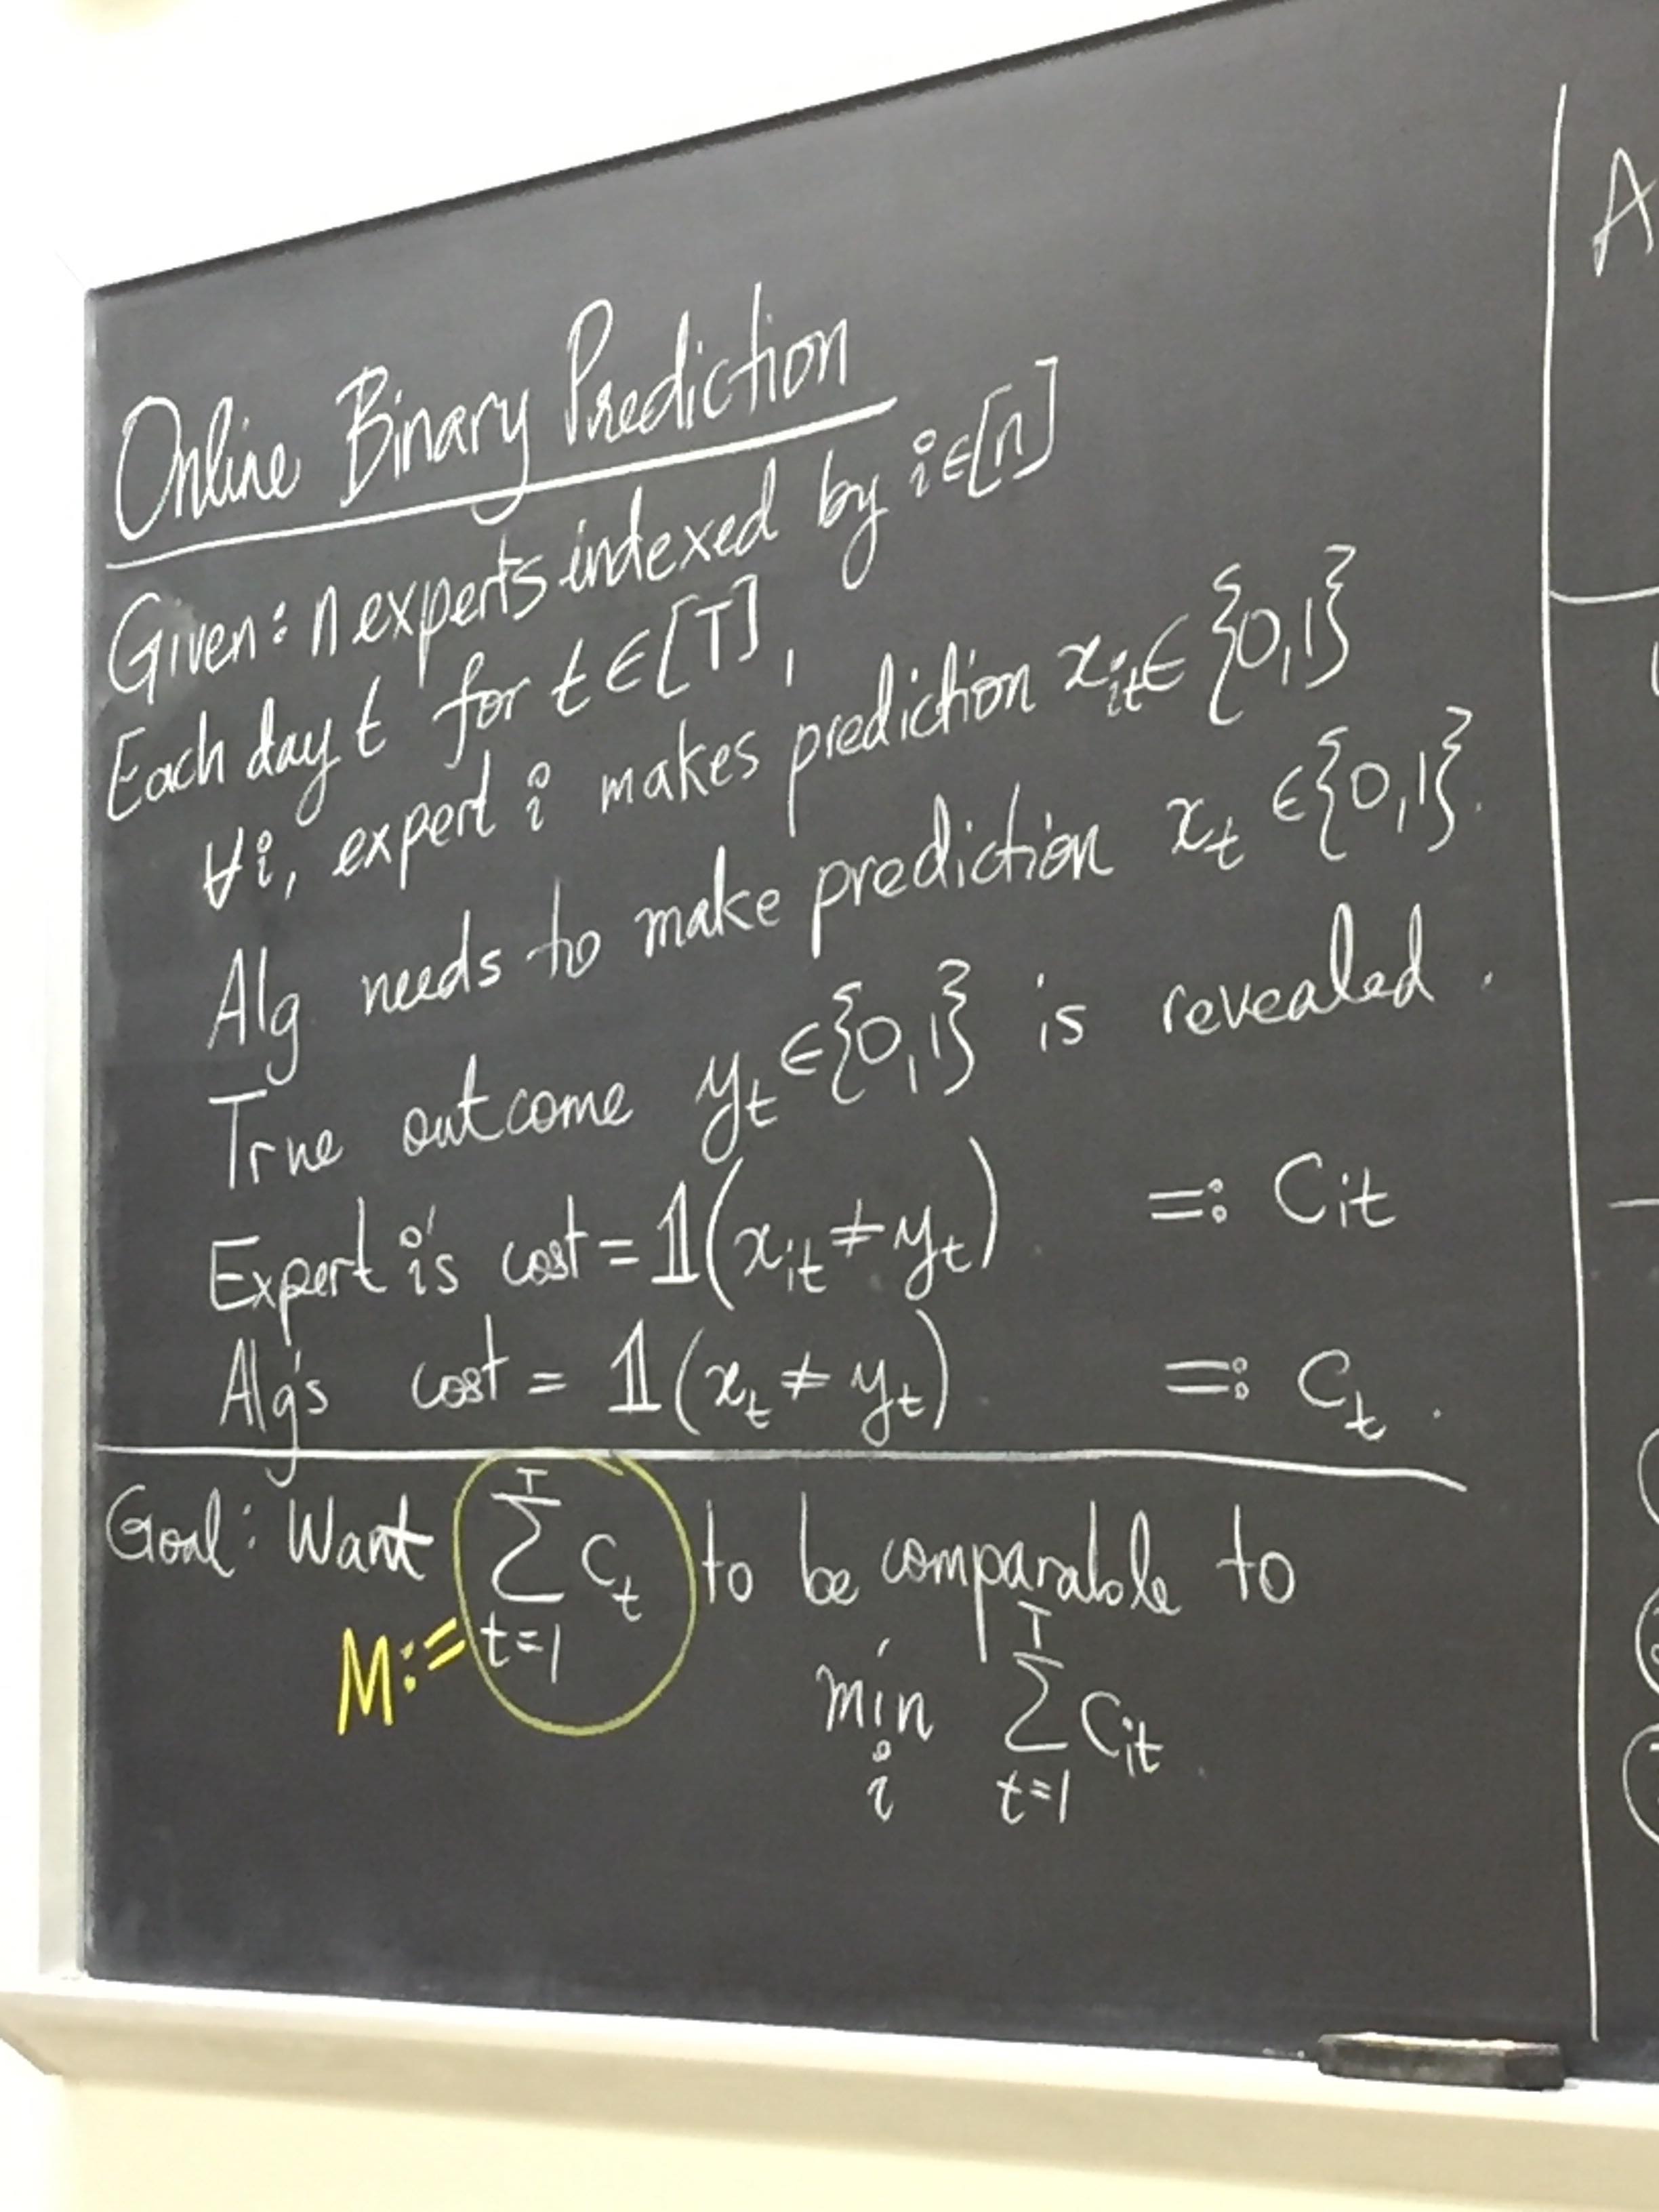 Online Binary Prediction
Given: n experts indexed by i∈[n]
Each day t for t∈[T],
∀i, expert i makes prediction x_it ∈ {0,1}
Alg needs to make prediction x_t ∈{0,1}.
True outcome y_t ∈{0,1} is revealed.
Expert i's cost = 𝟙(x_it ≠ y_t) =: C_it
Alg's cost = 𝟙(x_t ≠ y_t) =: C_t.
Goal: Want ∑_{t=1}^{T} C_t to be comparable to
M:=
min_i ∑_{t=1}^{T} C_it.
A